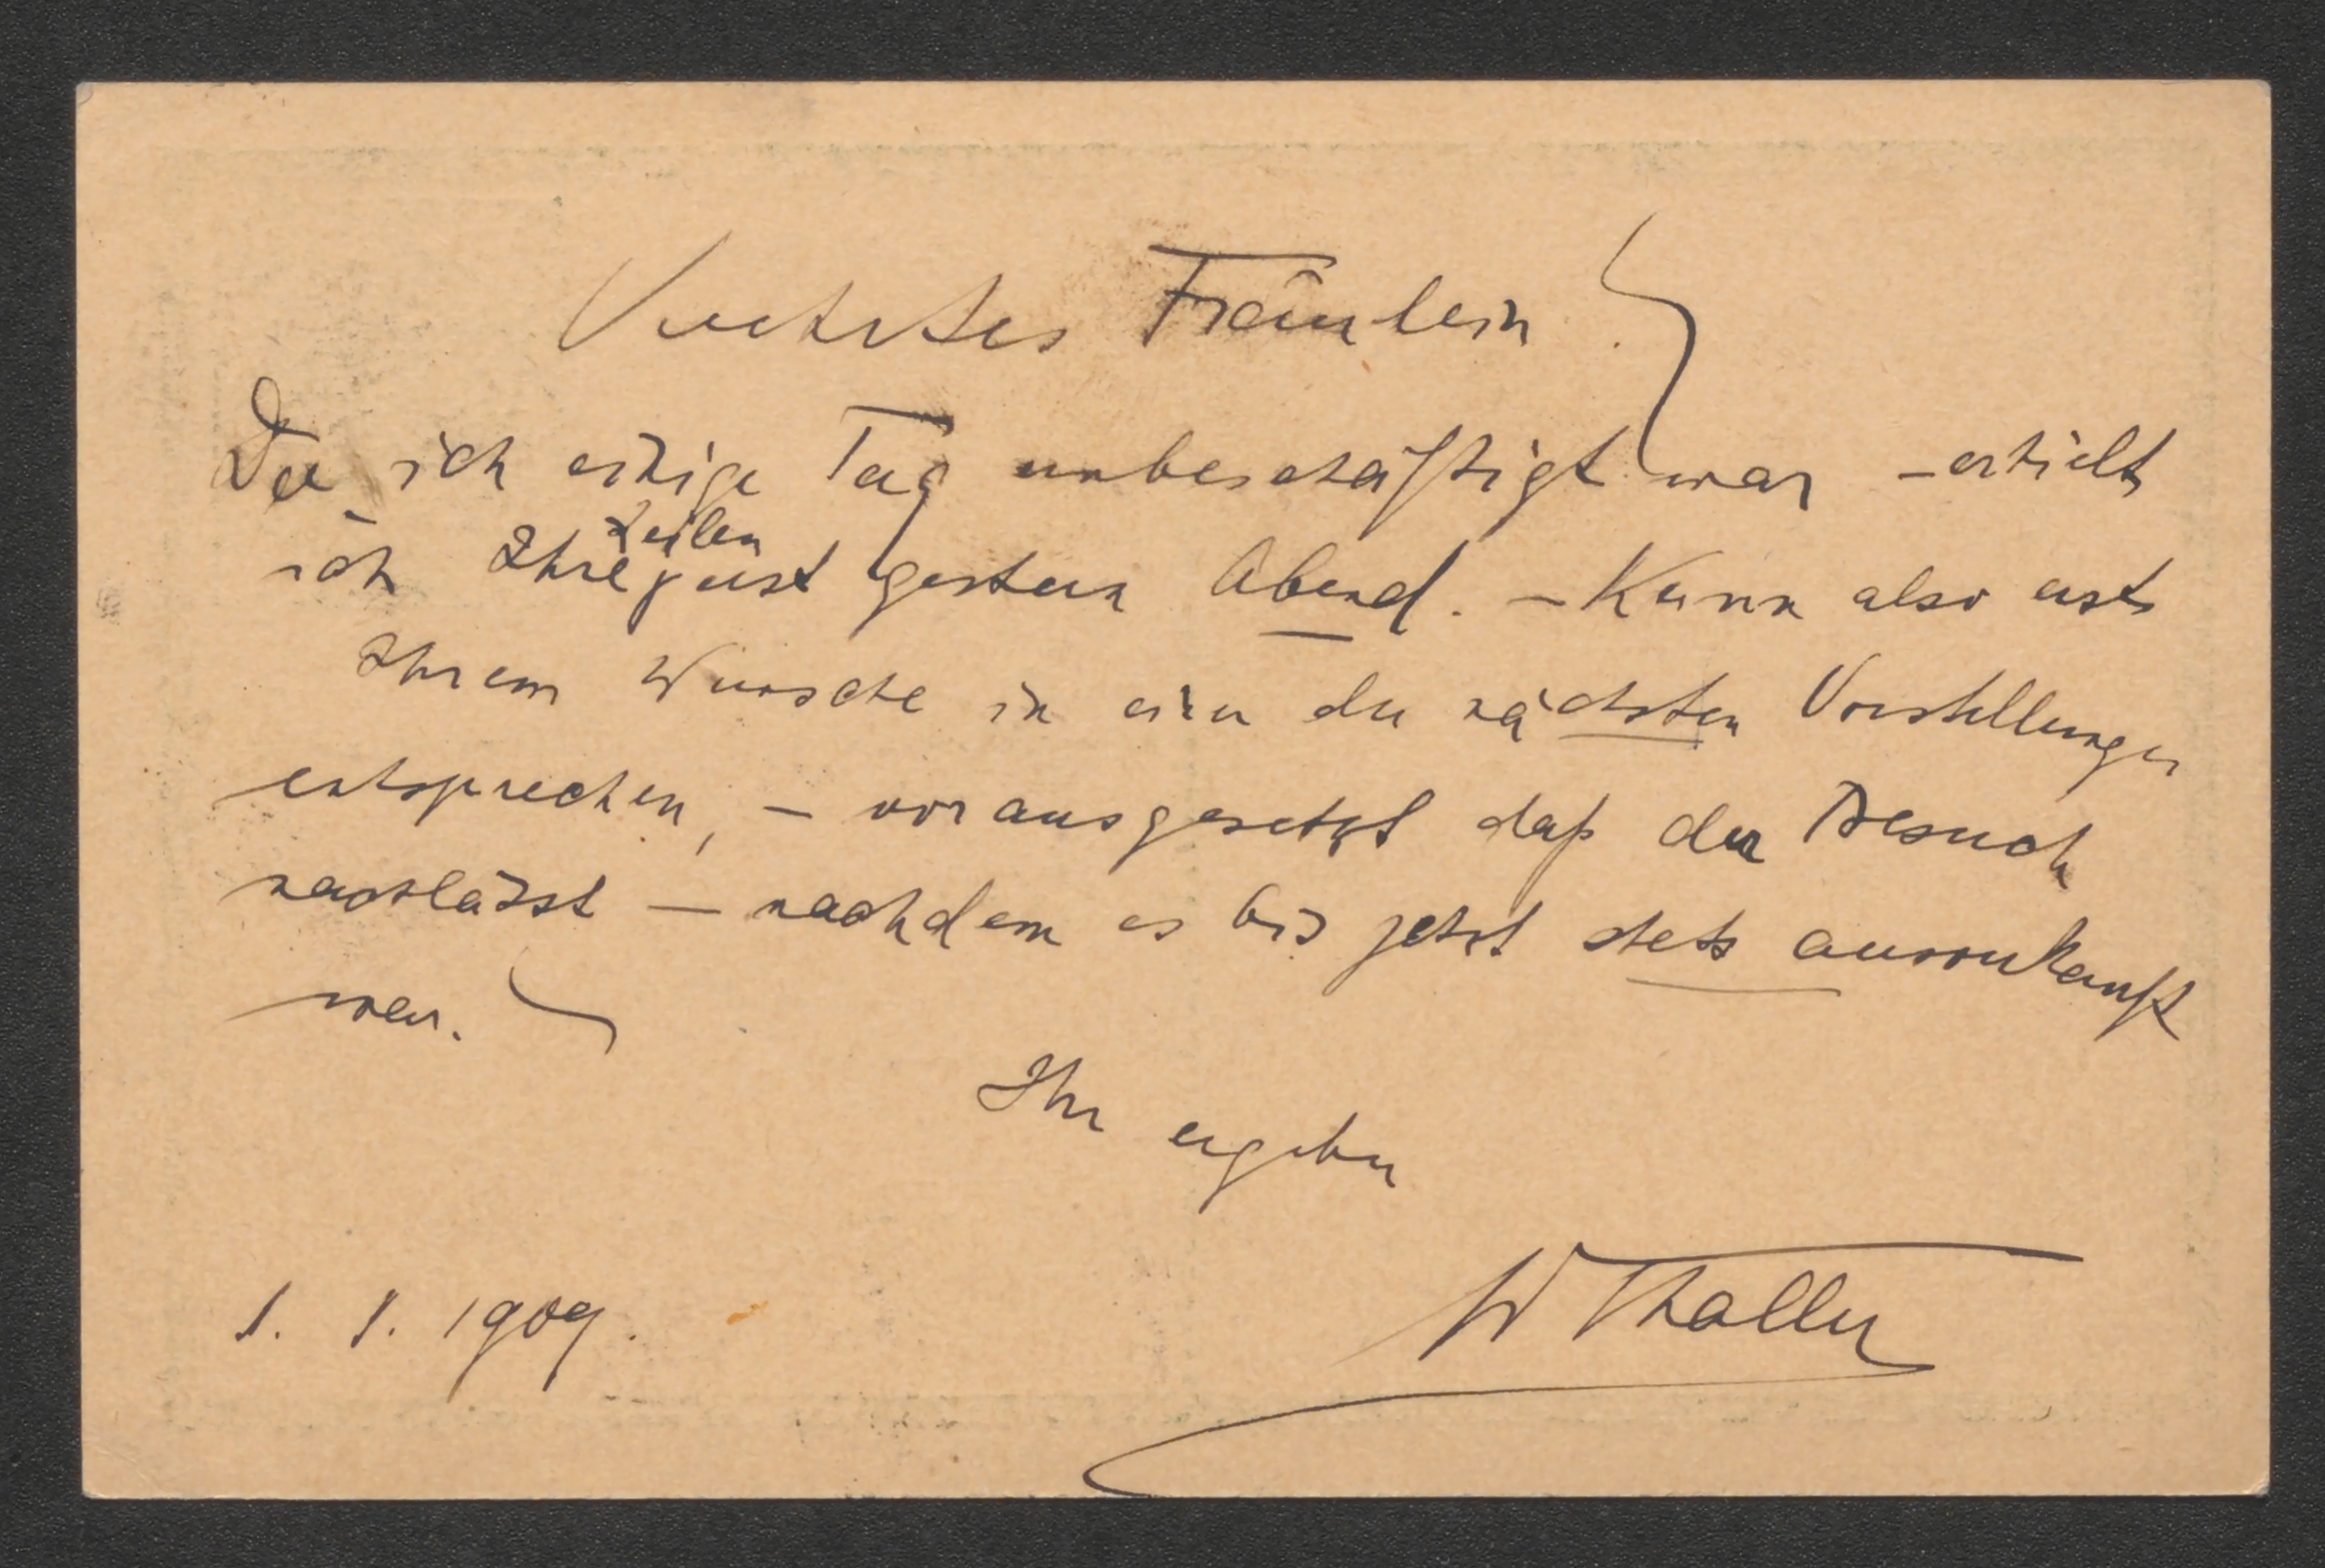 Verehrtes Fräulein!
Da ich einige Tage unbeschäftigt war – erhielt
ich Ihre Zeilen erst gestern Abend. – Kann also erst
Ihrem Wunsche in einer der nächsten Vorstellungen
entsprechen, – vorausgesetzt daß der Besuch
nachlässt – nachdem es bis jetzt stets ausverkauft
war.
Ihr ergebener
W Thaller
1. 1. 1909.